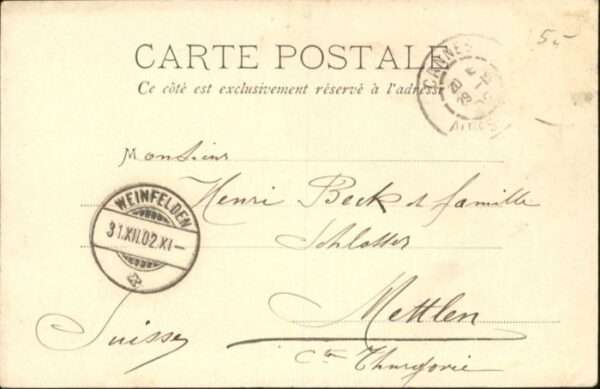 CARTE POSTALE
Ce côté est exclusivement réservé à l'adresse
5-
CANNES
Monsieur
Henri Beck et famille
Schlosser
WEINFELDEN
31.XII.02.XI-
Mettlen
Suisse
Cton Thurgovie